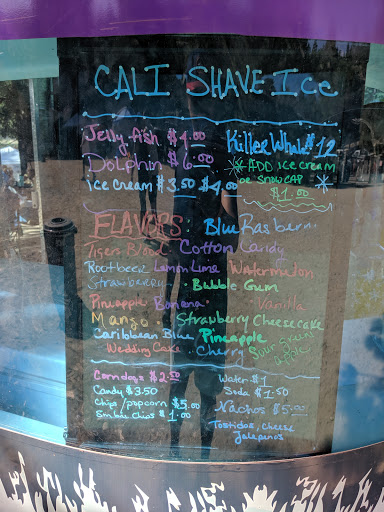 CALI SHAVE ICE
Jelly-fish $4.00
Killer Whale $12
Dolphin $6.00
ADD ice cream
or SNOW CAP
$1.00
ice cream $3.50 $4.00
FLAVORS: Blue Rasberri
Tigers Blood Cotton Candy
Rootbeer Lemon Lime Watermelon
Strawberry Bubble Gum
Pineapple Banana Vanilla
Mango Strawberry Cheesecake
Caribbean Blue Pineapple
Wedding Cake Cherry Sour Green Apple
Corndogs $2.50
Candy $3.50
Chips/popcorn $5.00
Small Chips $1.00
Water $1
Soda $1.50
Nachos $5.00
Tostidos, Cheese
Jalepeños